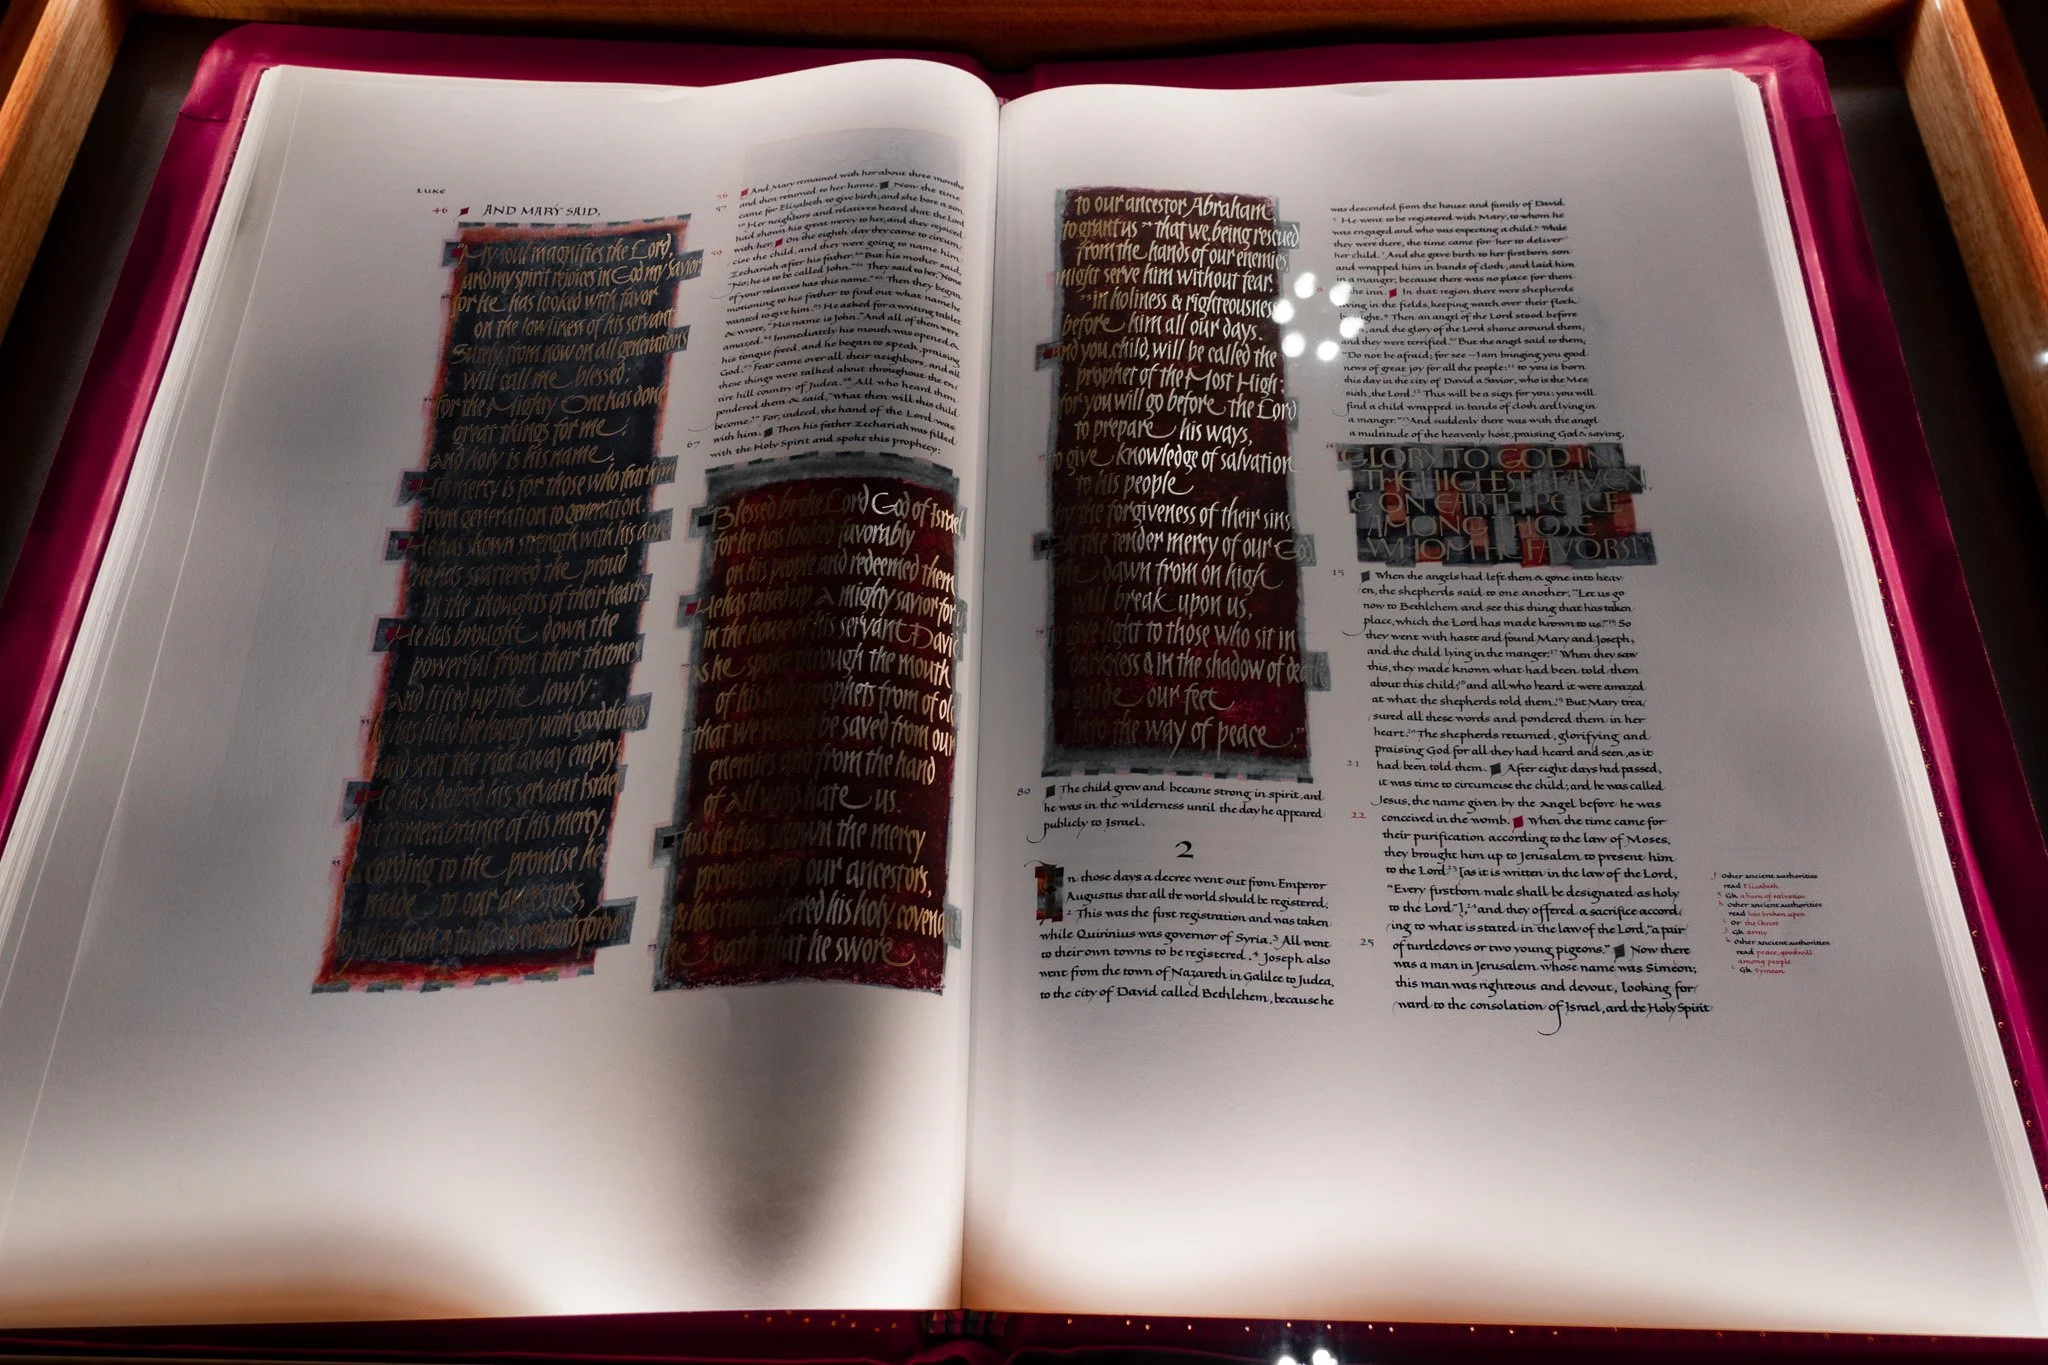 LUKE
46 AND MARY SAID,
"My soul magnifies the Lord,
and my spirit rejoices in God my Savior
for he has looked with favor
on the lowliness of his servant
Surely, from now on all generations
will call me blessed;
for the Mighty One has done
great things for me,
and holy is his name.
His mercy is for those who fear him
from generation to generation.
He has shown strength with his arm
he has scattered the proud
in the thoughts of their hearts
He has brought down the
powerful from their thrones
and lifted up the lowly;
he has filled the hungry with good things
and sent the rich away empty
He has helped his servant Israel
in remembrance of his mercy,
according to the promise he
made to our ancestors,
to Abraham & to his descendants forever
56 And Mary remained with her about three months
and then returned to her home. Now the time
57 came for Elizabeth to give birth, and she bore a son.
58 Her neighbors and relatives heard that the Lord
had shown his great mercy to her, and they rejoiced
59 with her. On the eighth day they came to circum
cise the child, and they were going to name him
Zechariah after his father. 60 But his mother said,
"No; he is to be called John." 61 They said to her, "None
of your relatives has this name." 62 Then they began
motioning to his father to find out what name he
wanted to give him. 63 He asked for a writing tablet
& wrote, "His name is John." And all of them were
amazed. 64 Immediately his mouth was opened &
his tongue freed, and he began to speak, praising
God. 65 Fear came over all their neighbors, and all
these things were talked about throughout the en
tire hill country of Judea. 66 All who heard them
pondered them & said, "What then will this child
become?" For, indeed, the hand of the Lord was
67 with him. Then his father Zechariah was filled
with the Holy Spirit and spoke this prophecy:
"Blessed be the Lord God of Israel
for he has looked favorably
on his people and redeemed them
He has raised up a mighty savior for us
in the house of his servant David
70 as he spoke through the mouth
of his holy prophets from of old
that we would be saved from our
enemies and from the hand
of all who hate us.
Thus he has shown the mercy
promised to our ancestors,
& has remembered his holy covenant
73 the oath that he swore
to our ancestor Abraham
to grant us 74 that we, being rescued
from the hands of our enemies,
might serve him without fear,
75 in holiness & righteousness
before him all our days.
And you, child, will be called the
prophet of the Most High;
for you will go before the Lord
to prepare his ways,
to give knowledge of salvation
to his people
by the forgiveness of their sins.
By the tender mercy of our God
the dawn from on high
will break upon us,
to give light to those who sit in
darkness & in the shadow of death
to guide our feet
into the way of peace."
80 The child grew and became strong in spirit, and
he was in the wilderness until the day he appeared
publicly to Israel.
2
In those days a decree went out from Emperor
Augustus that all the world should be registered.
2 This was the first registration and was taken
while Quirinius was governor of Syria. 3 All went
to their own towns to be registered. 4 Joseph also
went from the town of Nazareth in Galilee to Judea,
to the city of David called Bethlehem, because he
was descended from the house and family of David.
5 He went to be registered with Mary, to whom he
was engaged and who was expecting a child. 6 While
they were there, the time came for her to deliver
her child. 7 And she gave birth to her firstborn son
and wrapped him in bands of cloth, and laid him
in a manger, because there was no place for them
the inn. In that region there were shepherds
living in the fields, keeping watch over their flock
night. 9 Then an angel of the Lord stood before
, and the glory of the Lord shone around them,
and they were terrified. 10 But the angel said to them,
"Do not be afraid; for see – I am bringing you good
news of great joy for all the people: 11 to you is born
this day in the city of David a Savior, who is the Mes
siah, the Lord. 12 This will be a sign for you: you will
find a child wrapped in bands of cloth and lying in
a manger." 13 And suddenly there was with the angel
a multitude of the heavenly host, praising God & saying,
14 "GLORY TO GOD IN
THE HIGHEST HEAVEN,
& ON EARTH PEACE
AMONG THOSE
WHOM HE FAVORS!"
15 When the angels had left them & gone into heav
en, the shepherds said to one another, "Let us go
now to Bethlehem and see this thing that has taken
place, which the Lord has made known to us." 16 So
they went with haste and found Mary and Joseph,
and the child lying in the manger. 17 When they saw
this, they made known what had been told them
about this child; 18 and all who heard it were amazed
at what the shepherds told them. 19 But Mary trea
sured all these words and pondered them in her
heart. 20 The shepherds returned, glorifying and
praising God for all they had heard and seen, as it
21 had been told them. After eight days had passed,
it was time to circumcise the child; and he was called
Jesus, the name given by the angel before he was
22 conceived in the womb. When the time came for
their purification according to the law of Moses,
they brought him up to Jerusalem to present him
to the Lord 23 [as it is written in the law of the Lord,
"Every firstborn male shall be designated as holy
to the Lord"], 24 and they offered a sacrifice accord
ing to what is stated in the law of the Lord, "a pair
25 of turtledoves or two young pigeons." Now there
was a man in Jerusalem whose name was Simeon;
this man was righteous and devout, looking for
ward to the consolation of Israel, and the Holy Spirit
f Other ancient authorities
read Elizabeth
g Gk a horn of salvation
h Other ancient authorities
read has broken upon
i Or the Christ
j Gk army
k Other ancient authorities
read peace, goodwill
among people
l Gk Symeon